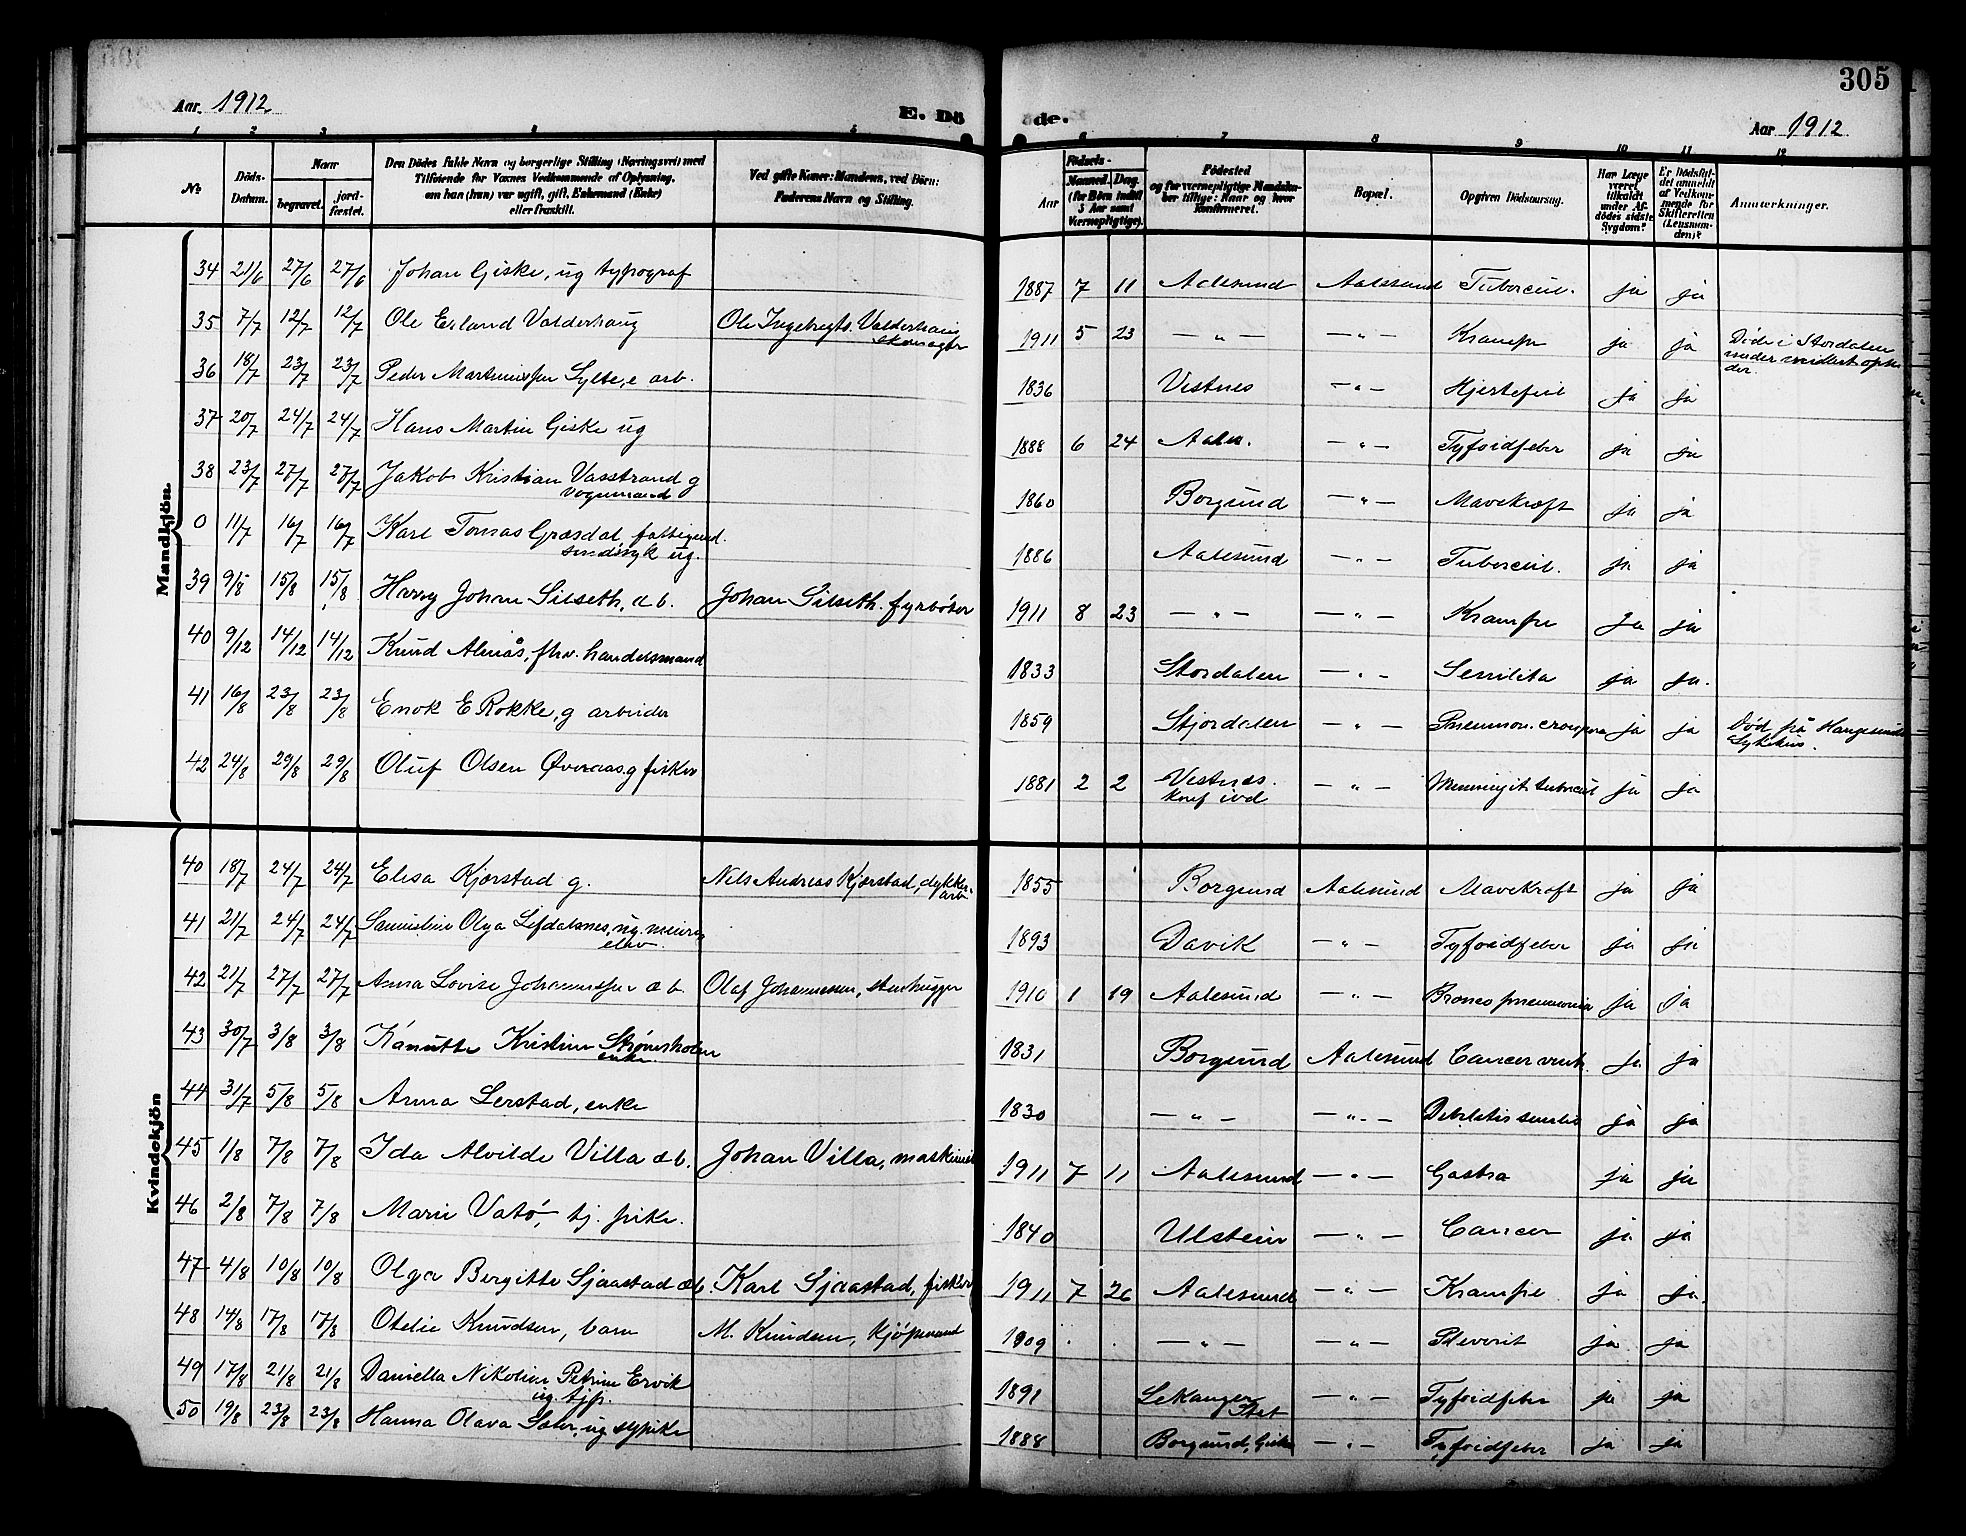 305
Aar. 1912.
E. Dö
de.
Aar 1912.
1 2 3 6 7 8 9 10 11 12
No
Döds-
Datum.
Naar
begravet.
jord-
fæstet.
Den Dödes fulde Navn og borgerlige Stilling (Næringsvei) med
Tilföiende for Voxnes Vedkommende af Oplysning,
om han (hun) var ugift, gift, Enkemand (Enke)
eller fraskilt.
Ved gifte Koner: Mandens, ved Börn:
Faderens Navn og Stilling.
Födsels-
Aar
Maaned. Dag.
(for Börn indtil
3 Aar samt
Værnepligtige).
Födested
og for værnepligtige Mandskaber
tillige: Naar og hvor
konfirmeret.
Bopæl.
Opgiven Dödsaarsag.
Har Læge
været
tilkaldt
under Af-
dödes sidste
Sygdom?
Er Dödsfal-
det anmeldt
af Vedkom-
mende for
Skifteretten
(Lensman-
den)?
Anmærkninger.
Mandkjön.
34 21/6 27/6 27/6 Johan Giske, ug typograf 1887 7 11 Aalesund Aalesund Tubercul. ja ja
35 7/7 12/7 12/7 Ole Erland Valderhaug Ole Ingebregts. Valderhaug 1911 5 23 — " — — " — Krampe ja ja Döde i Stordalen
under midlert. ophol
der.
36 18/7 23/7 23/7 Peder Martinussen Sylte, e arb. 1836 Vestnes — " — Hjertefeil ja ja
37 20/7 24/7 24/7 Hans Martin Giske ug 1888 6 24 Aales. — " — Tyfoidfeber ja ja
38 23/7 27/7 27/7 Jakob Kristian Vasstrand g
vognmand 1860 Borgund — " — Mavekræft ja ja
0 11/7 16/7 16/7 Karl Tomas Græsdal, fattigund.
sindssyk ug. 1886 Aalesund — " — Tubercul. ja ja
39 9/8 15/8 15/8 Harry Johan Silseth, d b. Johan Silseth. fyrböter 1911 8 23 — " — — " — Krampe ja ja
40 9/12 14/12 14/12 Knud Almås, fhv. handelsmand 1833 Stordalen — " — Senilita ja ja.
41 16/8 23/8 23/8 Enok E Rokke, g arbeider 1859 Stjordalen — " — Pneumon. crouposa ja ja Död på Haugesunds
Sykehus.
42 24/8 29/8 29/8 Oluf Olsen Øveraas, g fisker 1881 2 2 Vestnes.
konf ivd — " — Meningit tubercul ja ja
Kvindekjön
40 18/7 24/7 24/7 Elisa Kjærstad g. Nils Andreas Kjærstad, dykker-
arb 1855 Borgund Aalesund Mavekræft ja ja
41 21/7 24/7 24/7 Olga Lefdalsnes, ug. meieri
elev. 1893 Davik — " — Tyfoidfeber ja ja
42 21/7 27/7 27/7 Anna Lovise Johannessen æ b. Olaf Johannessen, stenhugger 1910 1 19 Aalesund — " — Broncopneumonia ja ja
43 30/7 3/8 3/8 Kanutte Kristine
enke 1831 Borgund Aalesund Cancer vent. ja ja
44 31/7 5/8 5/8 Anna Lerstad, enke 1830 — " — — " — Debilitis senilis ja ja
45 1/8 7/8 7/8 Ida Alvilde Villa æ b. Johan Villa, maskinist 1911 7 11 Aalesund — " — Gastro ja ja
46 2/8 7/8 7/8 Marie Vatö, tj. pike. 1840 Ulstein — " — Cancer ja ja
47 4/8 10/8 10/8 Olga Bergitte Sjaastad æ b. Karl Sjaastad, fisker 1911 7 26 Aalesund — " — Krampe ja ja.
48 14/8 17/8 17/8 Otelie Knudsen, barn M. Knudsen, kjöpmand 1909 — " — — " — Pleverit ja ja
49 17/8 21/8 21/8 Daniella Nikoline Petrine Ervik
ug. tjp. 1891 Lekanger — " — Tyfoidfeber ja ja
50 19/8 23/8 23/8 Hanna Olava Sæter, ug sypike 1888 Borgund, Giske — " — Tyfoidfeber ja ja